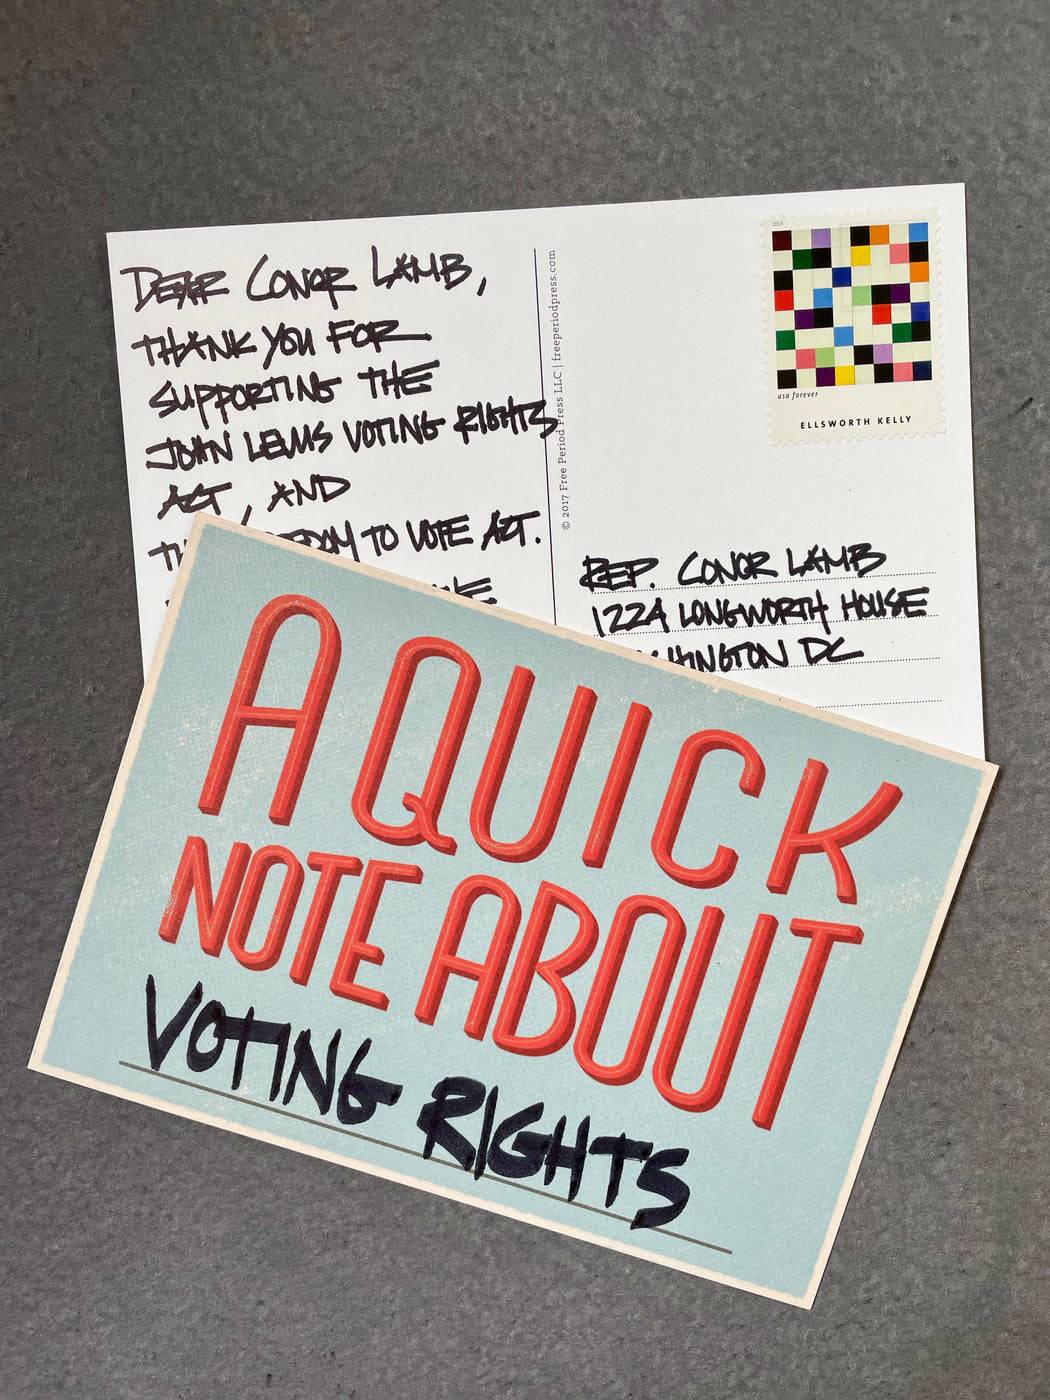 DEAR CONOR LAMB,
THANK YOU FOR
SUPPORTING THE
JOHN LEWIS VOTING RIGHTS
ACT, AND
TO VOTE ACT.
© 2017 Free Period Press LLC | freeperiodpress.com
2019
usa forever
ELLSWORTH KELLY
REP. CONOR LAMB
1224 LONGWORTH HOUSE
DC
A QUICK
NOTE ABOUT
VOTING RIGHTS